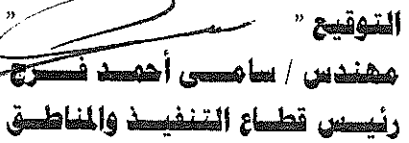 التوقيع " "
مهندس / سامى أحمد فرج
رئيس قطاع التنفيذ والمناطق